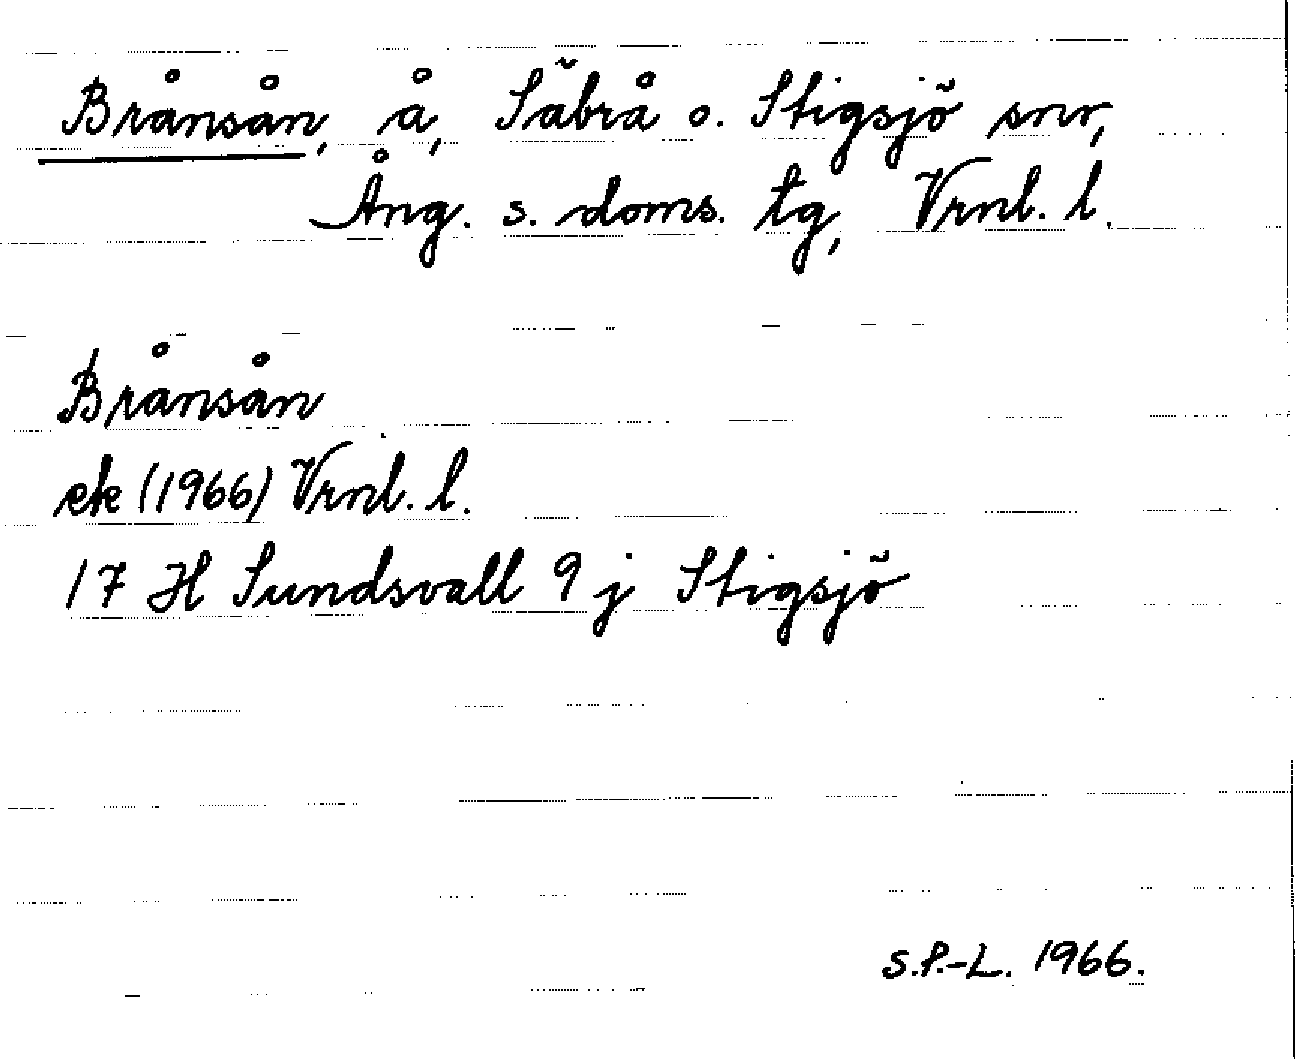 Brånsån, å, Säbrå o. Stigsjö snr,
Ång. s. doms. tg, Vrnl. l.
Brånsån
ek (1966) Vrnl. l.
17 H Sundsvall 9 j Stigsjö
S.P.-L. 1966.